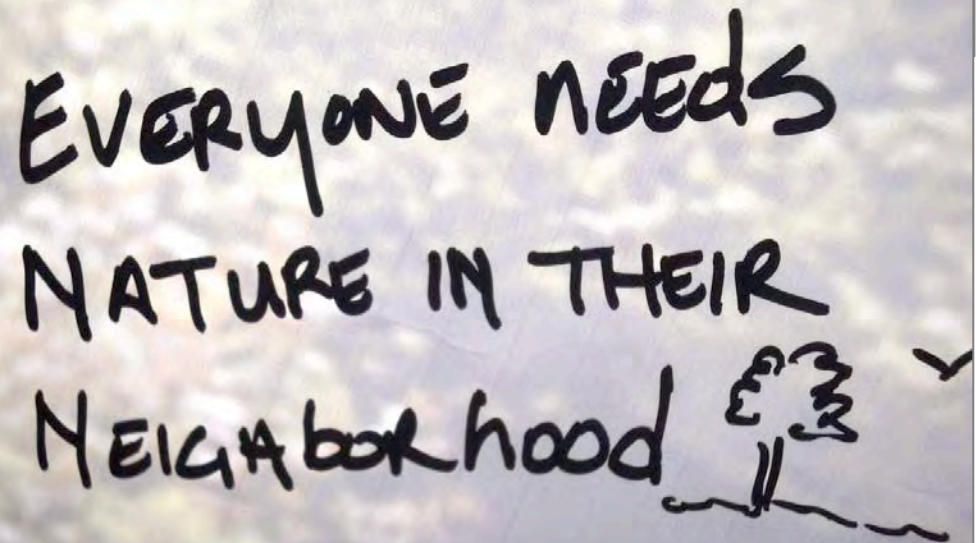 EVERYONE NEEdS
NATURE IN THEIR
NEIGHborhood